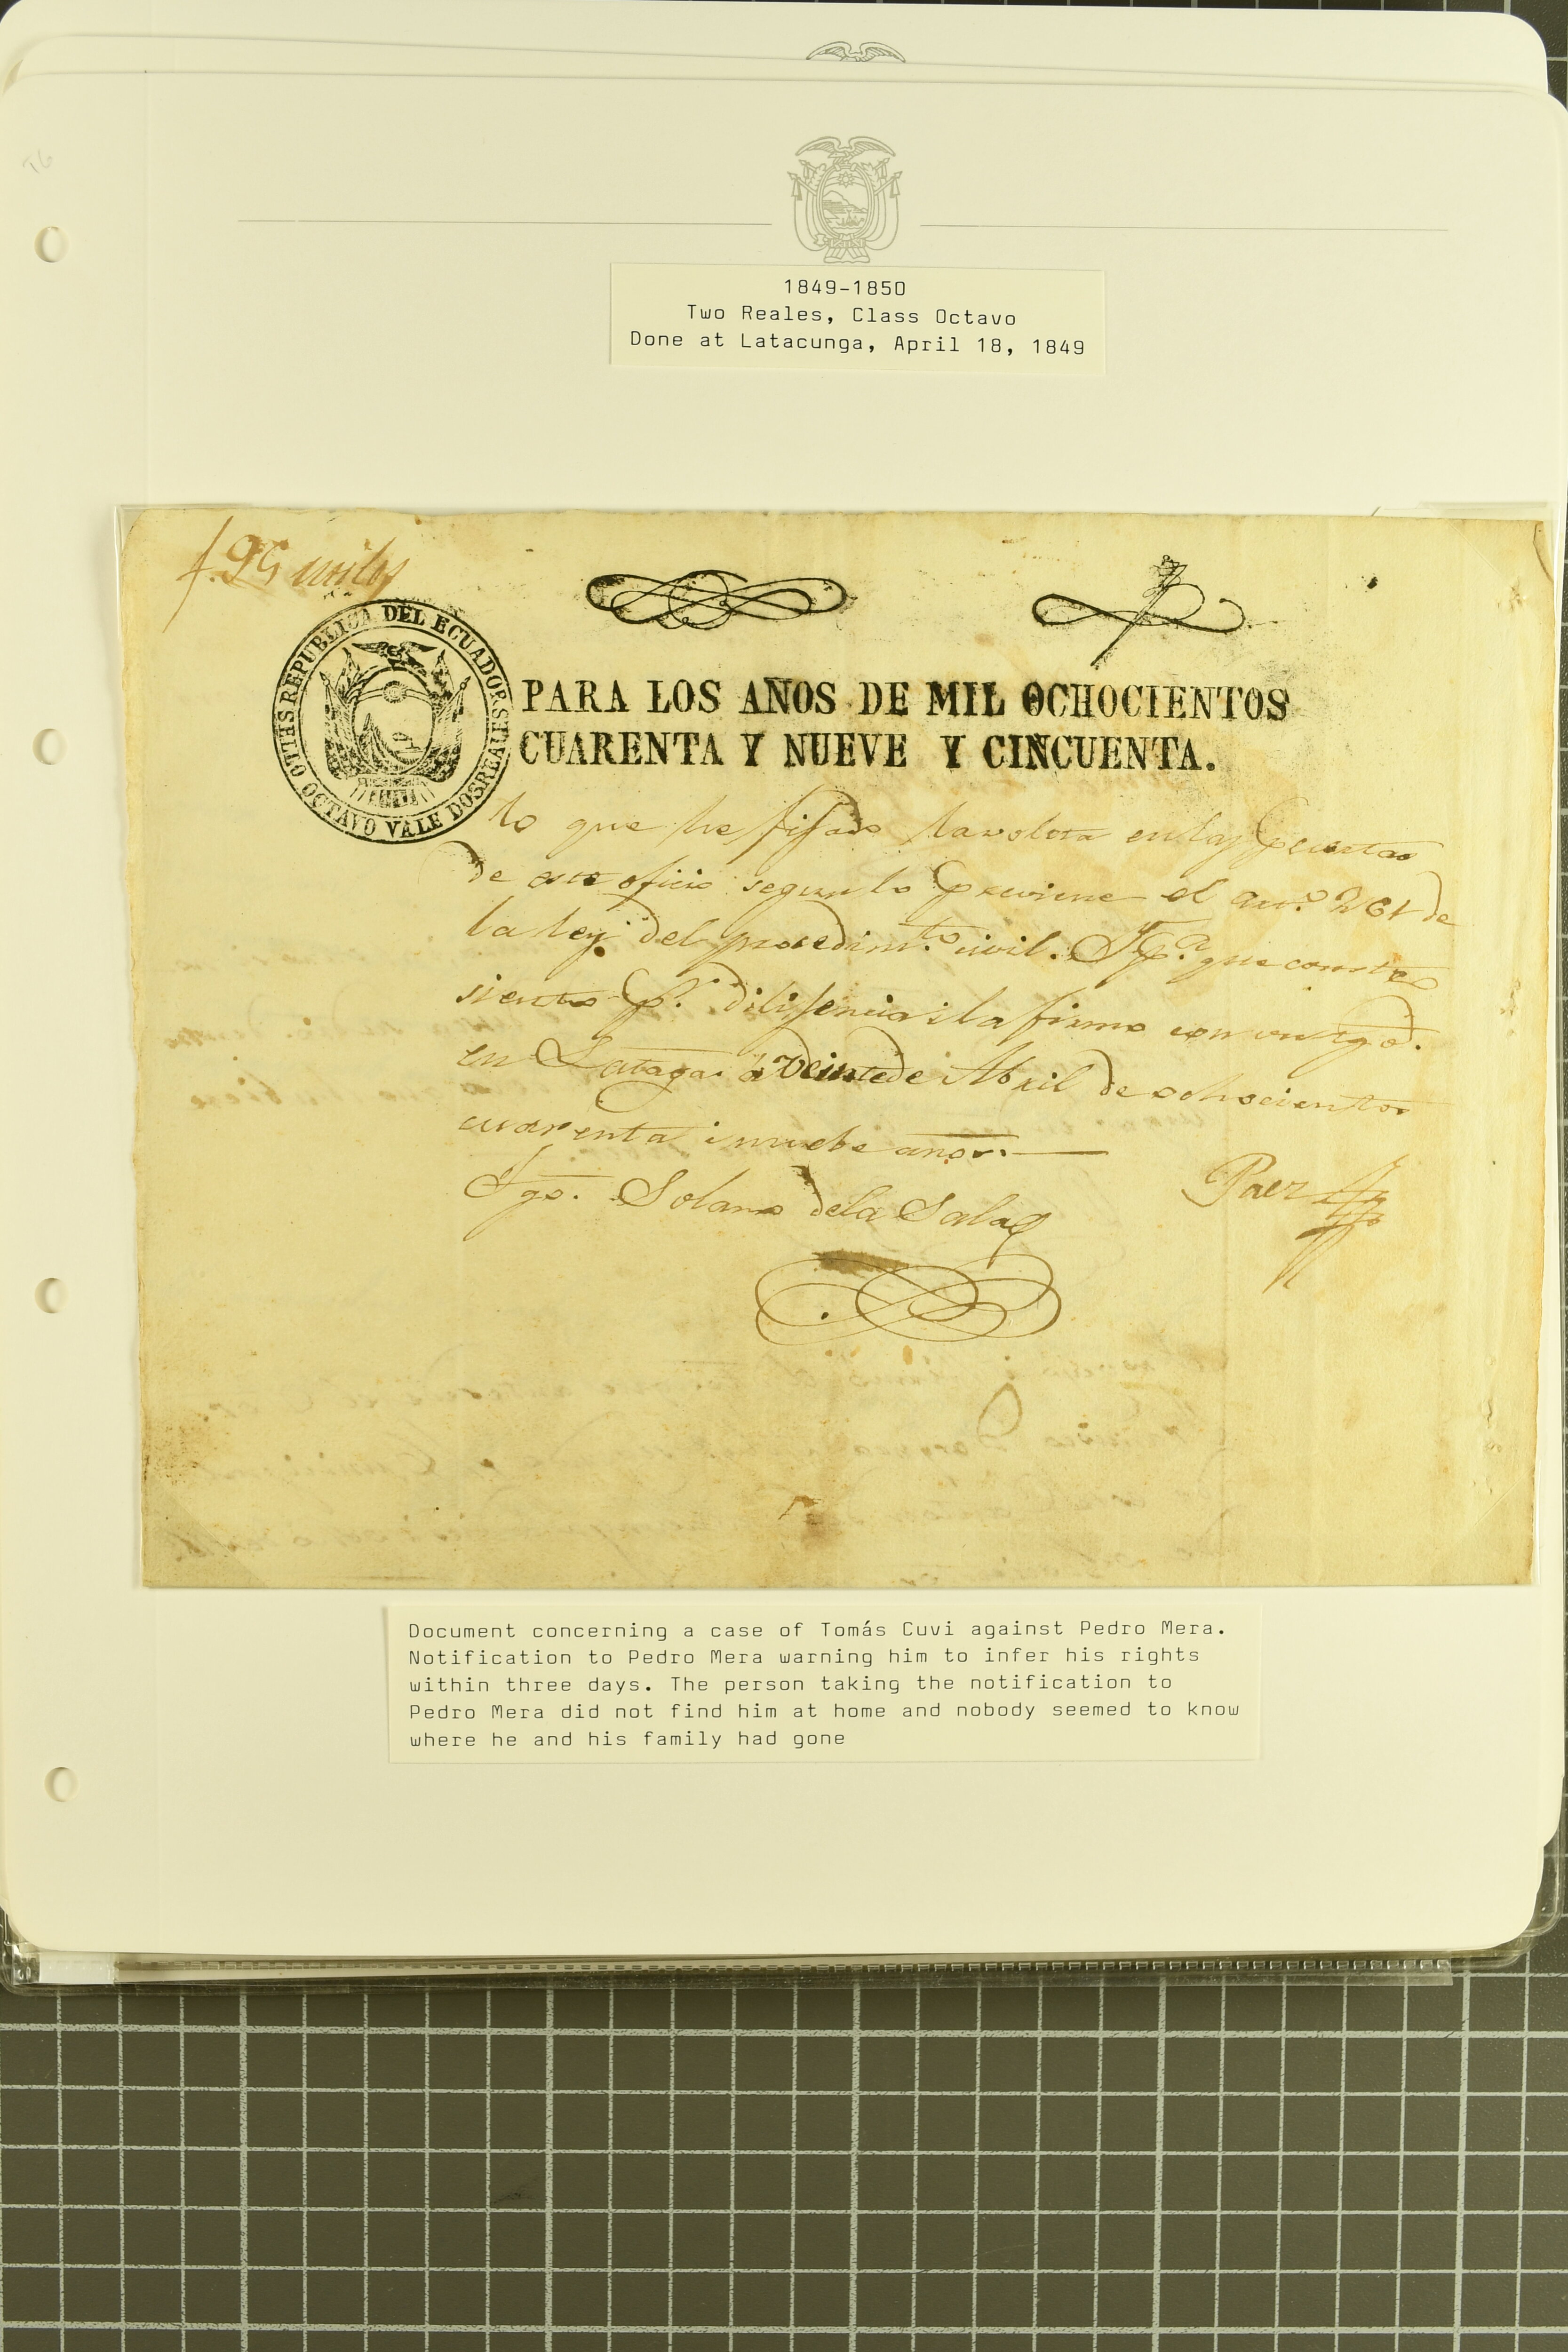 1849-1850
Two Reales, Class Octavo
Done at Latacunga, April 18, 1849
f. 25
REPUBLICA DEL ECUADOR SELLO OCTAVO VALE DOS REALES
PARA LOS AÑOS DE MIL OCHOCIENTOS
CUARENTA Y NUEVE Y CINCUENTA.
lo que he fijado la voleta en las puertas
de este oficio segun lo previene el art.o 261 de
la ley del procedim.to civil. I p.a que conste
siento p.r dilijencia i la firmo con un tgo.
en Latag.a á veinte de Abril de ochocientos
cuarenta i nuebe años.
Tgo. Solano de la Sala
Paez
Document concerning a case of Tomás Cuvi against Pedro Mera.
Notification to Pedro Mera warning him to infer his rights
within three days. The person taking the notification to
Pedro Mera did not find him at home and nobody seemed to know
where he and his family had gone